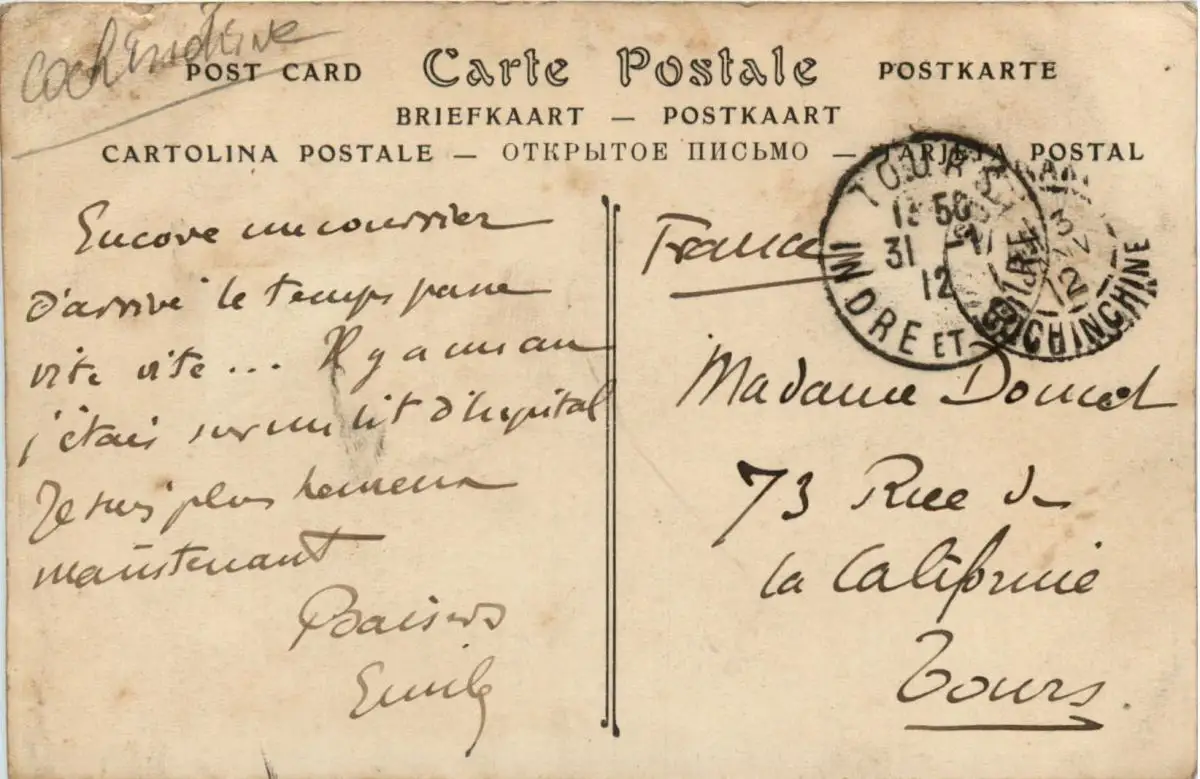 Cochinchine
POST CARD Carte Postale POSTKARTE
BRIEFKAART — POSTKAART
CARTOLINA POSTALE — ОТКРЫТОЕ ПИСЬМО — TARJETA POSTAL
Encore un courrier
d'arrivé le temps passe
vite vite... Il y a un an
j'étais sur un lit d'hopital
Je suis plus heureux
maintenant
Baisers
France
Madame
73 Rue de
la Californie
Tours
TOURS
31
12
INDRE ET LOIRE
12
COCHINCHINE